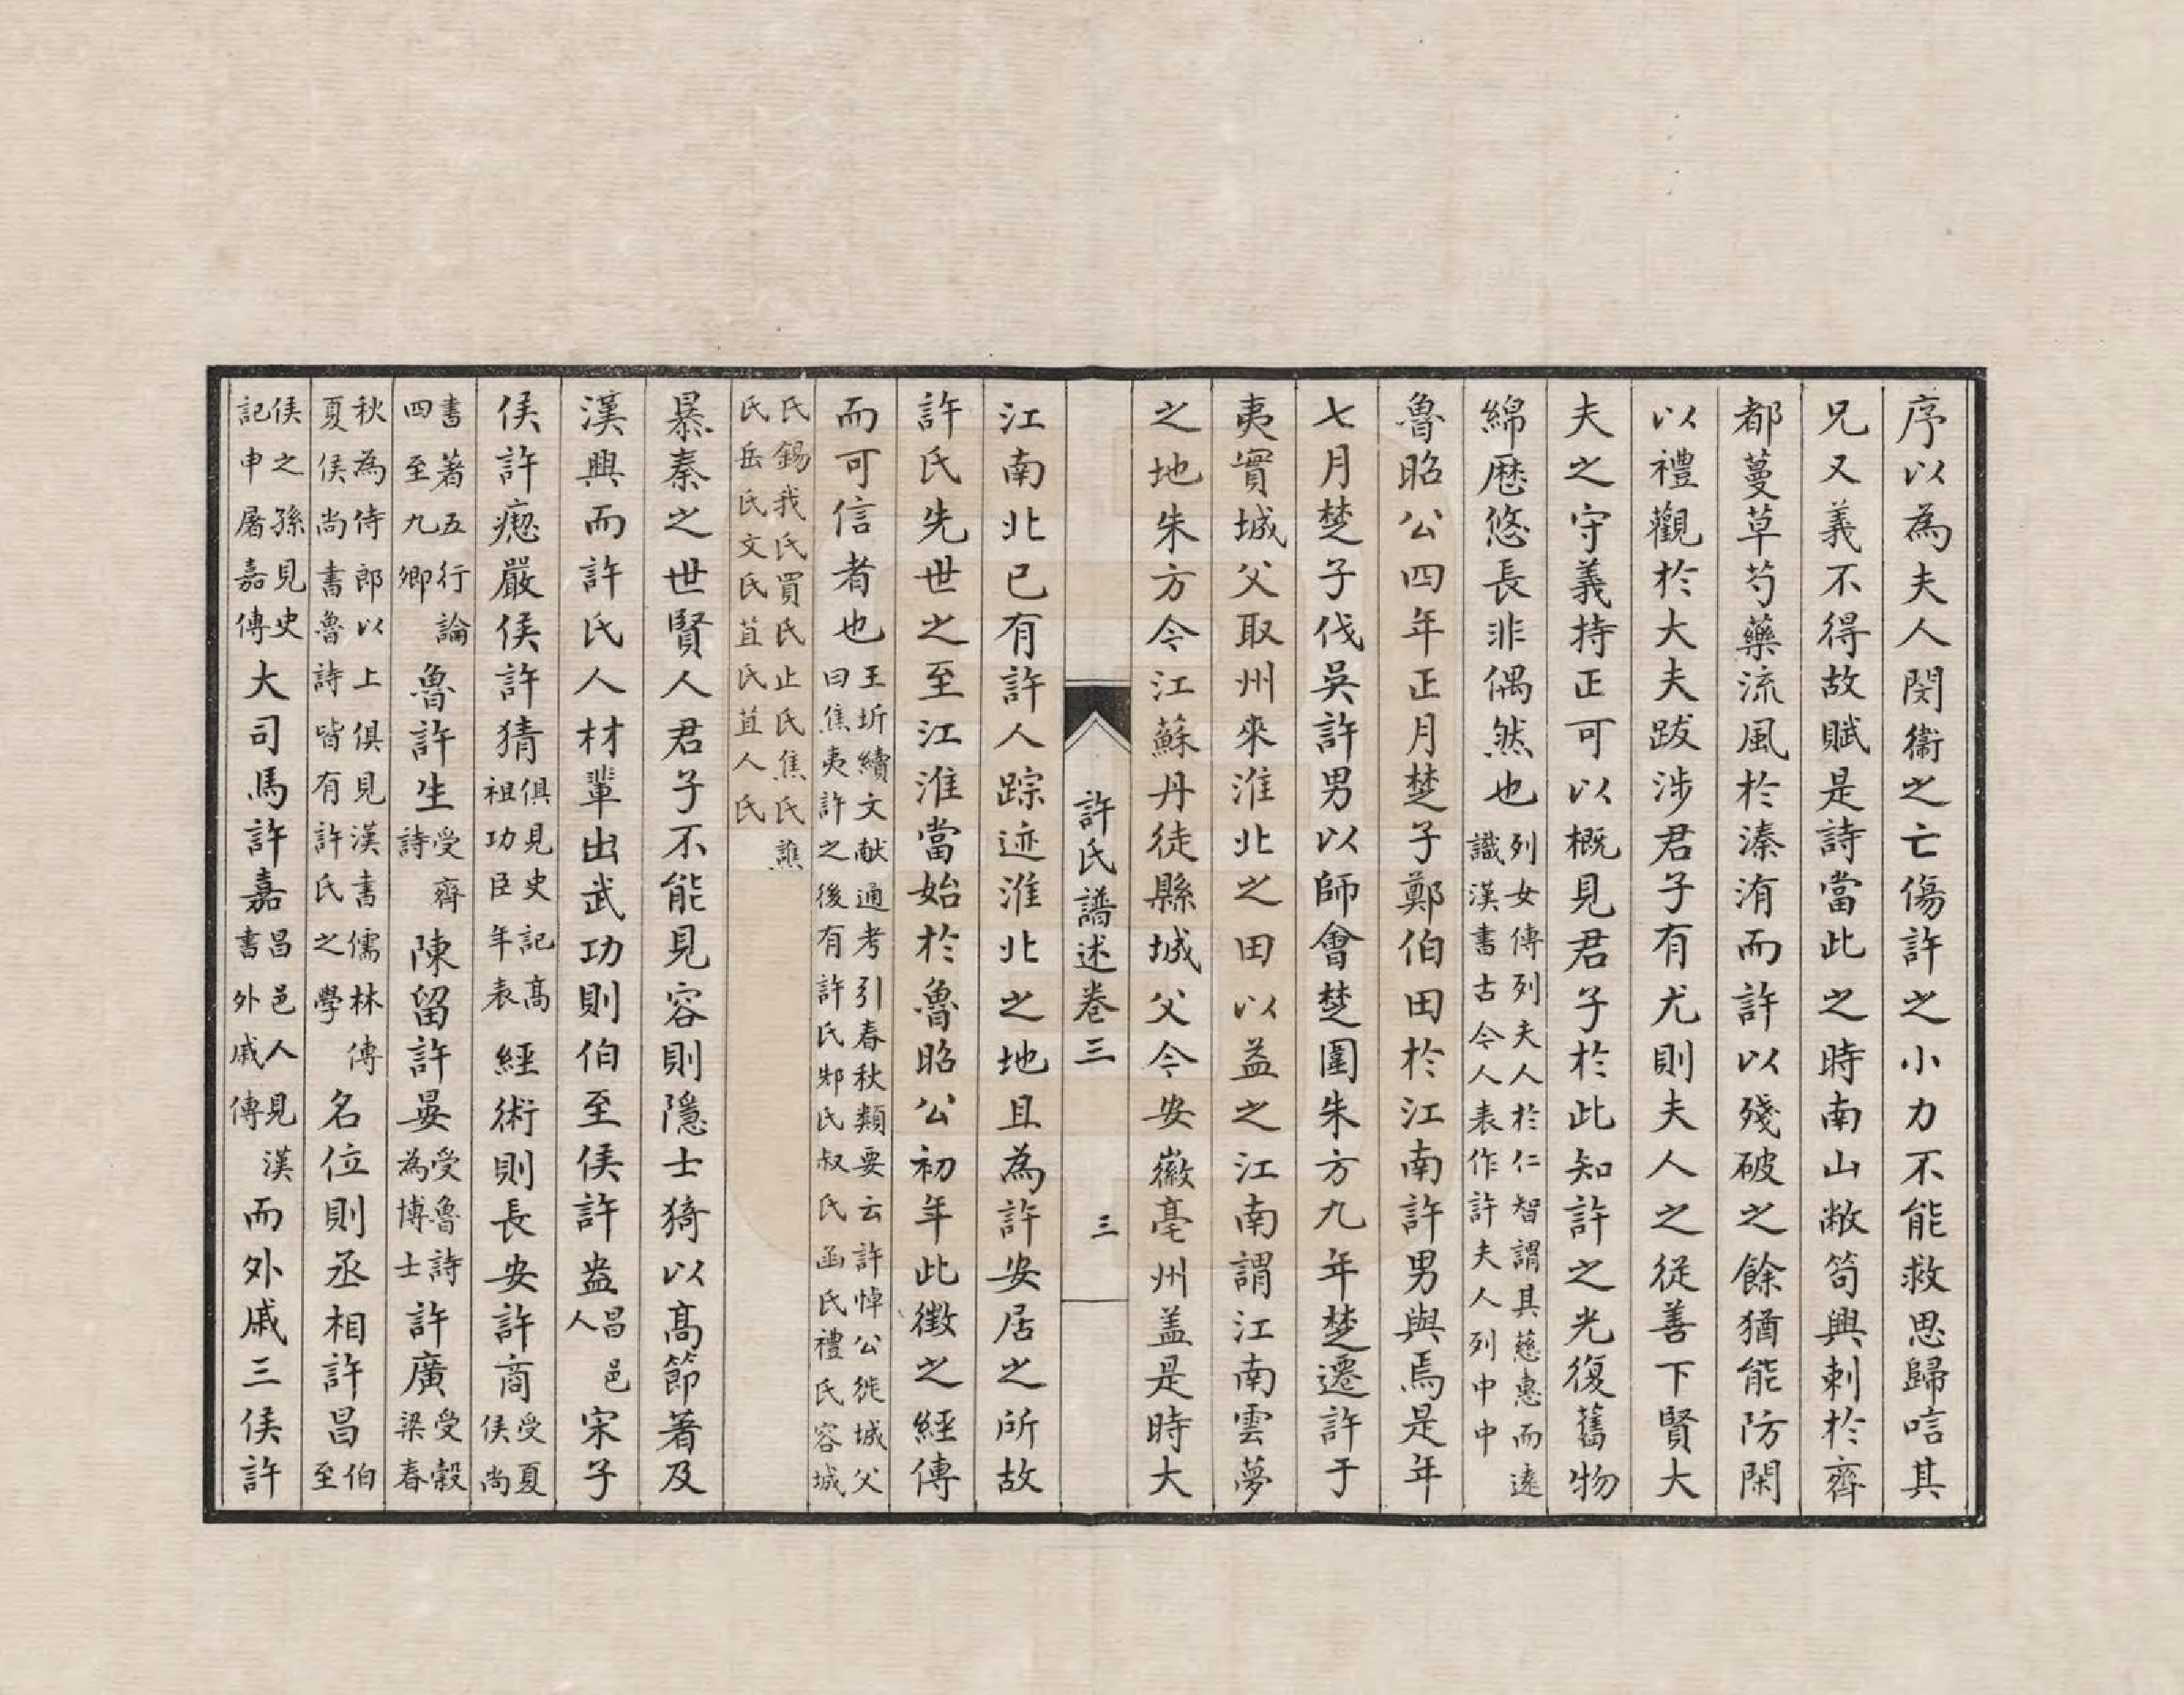 序以為夫人閔衞之亡傷許之小力不能救思歸唁其
兄又義不得故賦是詩當此之時南山敝笱興刺於齊
都蔓草芍藥流風於溱洧而許以殘破之餘猶能防閑
以禮觀於大夫跋涉君子有尤則夫人之從善下賢大
夫之守義持正可以概見君子於此知許之光復舊物
綿厯悠長非偶然也列女傳列夫人於仁智謂其慈惠而遠識漢書古今人表作許夫人列中中
魯昭公四年正月楚子鄭伯田於江南許男與焉是年
七月楚子伐吳許男以師會楚圍朱方九年楚遷許于
夷實城父取州來淮北之田以益之江南謂江南雲夢
之地朱方今江蘇丹徒縣城父今安徽亳州盖是時大
許氏譜述卷三 三
江南北已有許人踪迹淮北之地且為許安居之所故
許氏先世之至江淮當始於魯昭公初年此徵之經傳
而可信者也王圻續文献通考引春秋類要云許悼公徙城父曰焦夷許之後有許氏邾氏叔氏函氏禮氏容城
氏錫我氏買氏止氏焦氏譙氏岳氏文氏苴氏苴人氏
暴秦之世賢人君子不能見容則隱士猗以高節著及
漢興而許氏人材輩出武功則伯至侯許盎昌邑人宋子
侯許瘛嚴侯許猜俱見史記高祖功臣年表經術則長安許商受夏侯尚
書著五行論四至九卿魯許生受齊詩陳留許晏受魯詩為博士許廣受穀梁春
秋為侍郎以上俱見漢書儒林傳夏侯尚書魯詩皆有許氏之學名位則丞相許昌伯至
侯之孫見史記申屠嘉傳大司馬許嘉昌邑人見漢書外戚傳而外戚三侯許